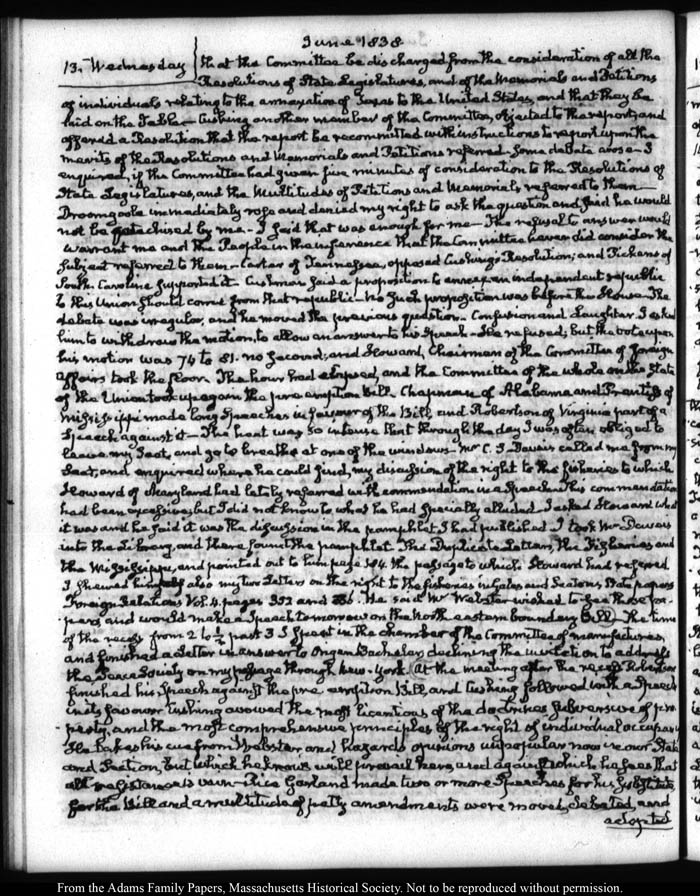 June 1838
13. Wednesday that the Committee be discharged from the consideration of all the
Resolutions of State Legislatures, and of the Memorials and Petitions
of individuals relating to the annexation of Texas to the United States, and that they be
laid on the Table — Cushing another member of the Committee, objected to the report, and
offered a Resolution that the report be recommitted with instructions to report upon the
merits of the Resolutions and Memorials and Petitions referred. Some debate arose — I
enquired, if the Committee had given five minutes of consideration to the Resolutions of
State Legislatures, and the Multitudes of Petitions and Memorials referred to them —
Dromgoole immediately rose and denied my right to ask the question and said he would
not be catechised by me — I said that was enough for me — The refusal to answer would
warrant me and the People in the inference that the Committee never did consider the
subject referred to them — Carter of Tennessee, opposed Cushing's Resolution; and Pickens of
South Carolina supported it — Cushman said a proposition to annex an independent republic
to this Union should come from that republic — no such proposition was before the House. The
debate was irregular, and he moved the previous question. Confusion and Laughter. I asked
him to withdraw the motion, to allow an answer to his Speech. He refused; but the vote upon
his motion was 74 to 81. no second; and Howard, Chairman of the Committee of foreign
affairs took the floor. The hour had elapsed, and the Committee of the whole on the State
of the Union took up again the pre-emption bill. Chapman of Alabama and Prentiss of
Mississippi made long Speeches in favour of the Bill, and Robertson of Virginia part of a
Speech against it — The heat was so intense that through the day I was often obliged to
leave my seat, and go to breathe at one of the windows — Mr C. S. Daveis called me from my
Seat, and enquired where he could find, my discussion of the right to the fisheries to which
Howard of Maryland had lately referred with commendation in a Speech. This commendation
had been excessive, but I did not know to what he had specially alluded. I asked Howard what
it was and he said it was the discussion in the pamphlet I had published. I took Mr Daveis
into the Library, and there found the pamphlet. The Duplicate Letters, the Fisheries and
the Mississippi, and pointed out to him page 184. the passage to which Howard had referred
I shewed him also my two Letters on the right to the fisheries in Gales and Seatons State papers
Foreign Relations Vol. 4. pages 352 and He said Mr Webster wished to see those
pers, and would make a Speech tomorrow on the North eastern boundary Bill. The time
of the recess from 2 to ½ past 3 I spent in the chamber of the Committee of manufactures,
and finished a Letter in answer to Origen Bachelor, declining the invitation to address
the Peace Society on my passage through New-York. At the meeting after the recess Robertson
finished his Speech against the pre-emption Bill, and Cushing followed with a Speech
in its favour. Cushing avowed the most licentious of the doctrines subversive of pro-
perty, and the most comprehensive principles of the right of individual occupancy
He takes his cue from Webster and hazards opinions unpopular now in our State
and Section, but which he knows will prevail here, and against which he sees that
all resistance is vain — Rice Garland made two or more Speeches for his substitute
for the Bill and a multitude of petty amendments were moved, debated, and
adopted
From the Adams Family Papers, Massachusetts Historical Society. Not to be reproduced without permission.